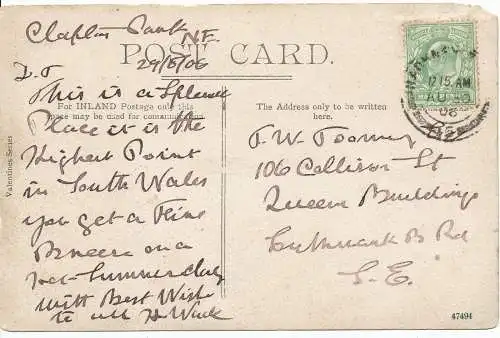 Clapton Park
N.E.
POST CARD.
29/8/06
D. T
This is a Splend
For INLAND Postage only this
space may be used for communication
Place it is the
Highest Point
in South Wales
you get a Fine
Breeze on a
hot Summer day
With Best Wishes
to all H. Wick
Valentines Series
The Address only to be written
here.
F. W. Toomey
106 Collinson St
Queens Buildings
Southwark B Rd
S. E.
12.15 AM
AU 30
06
47494